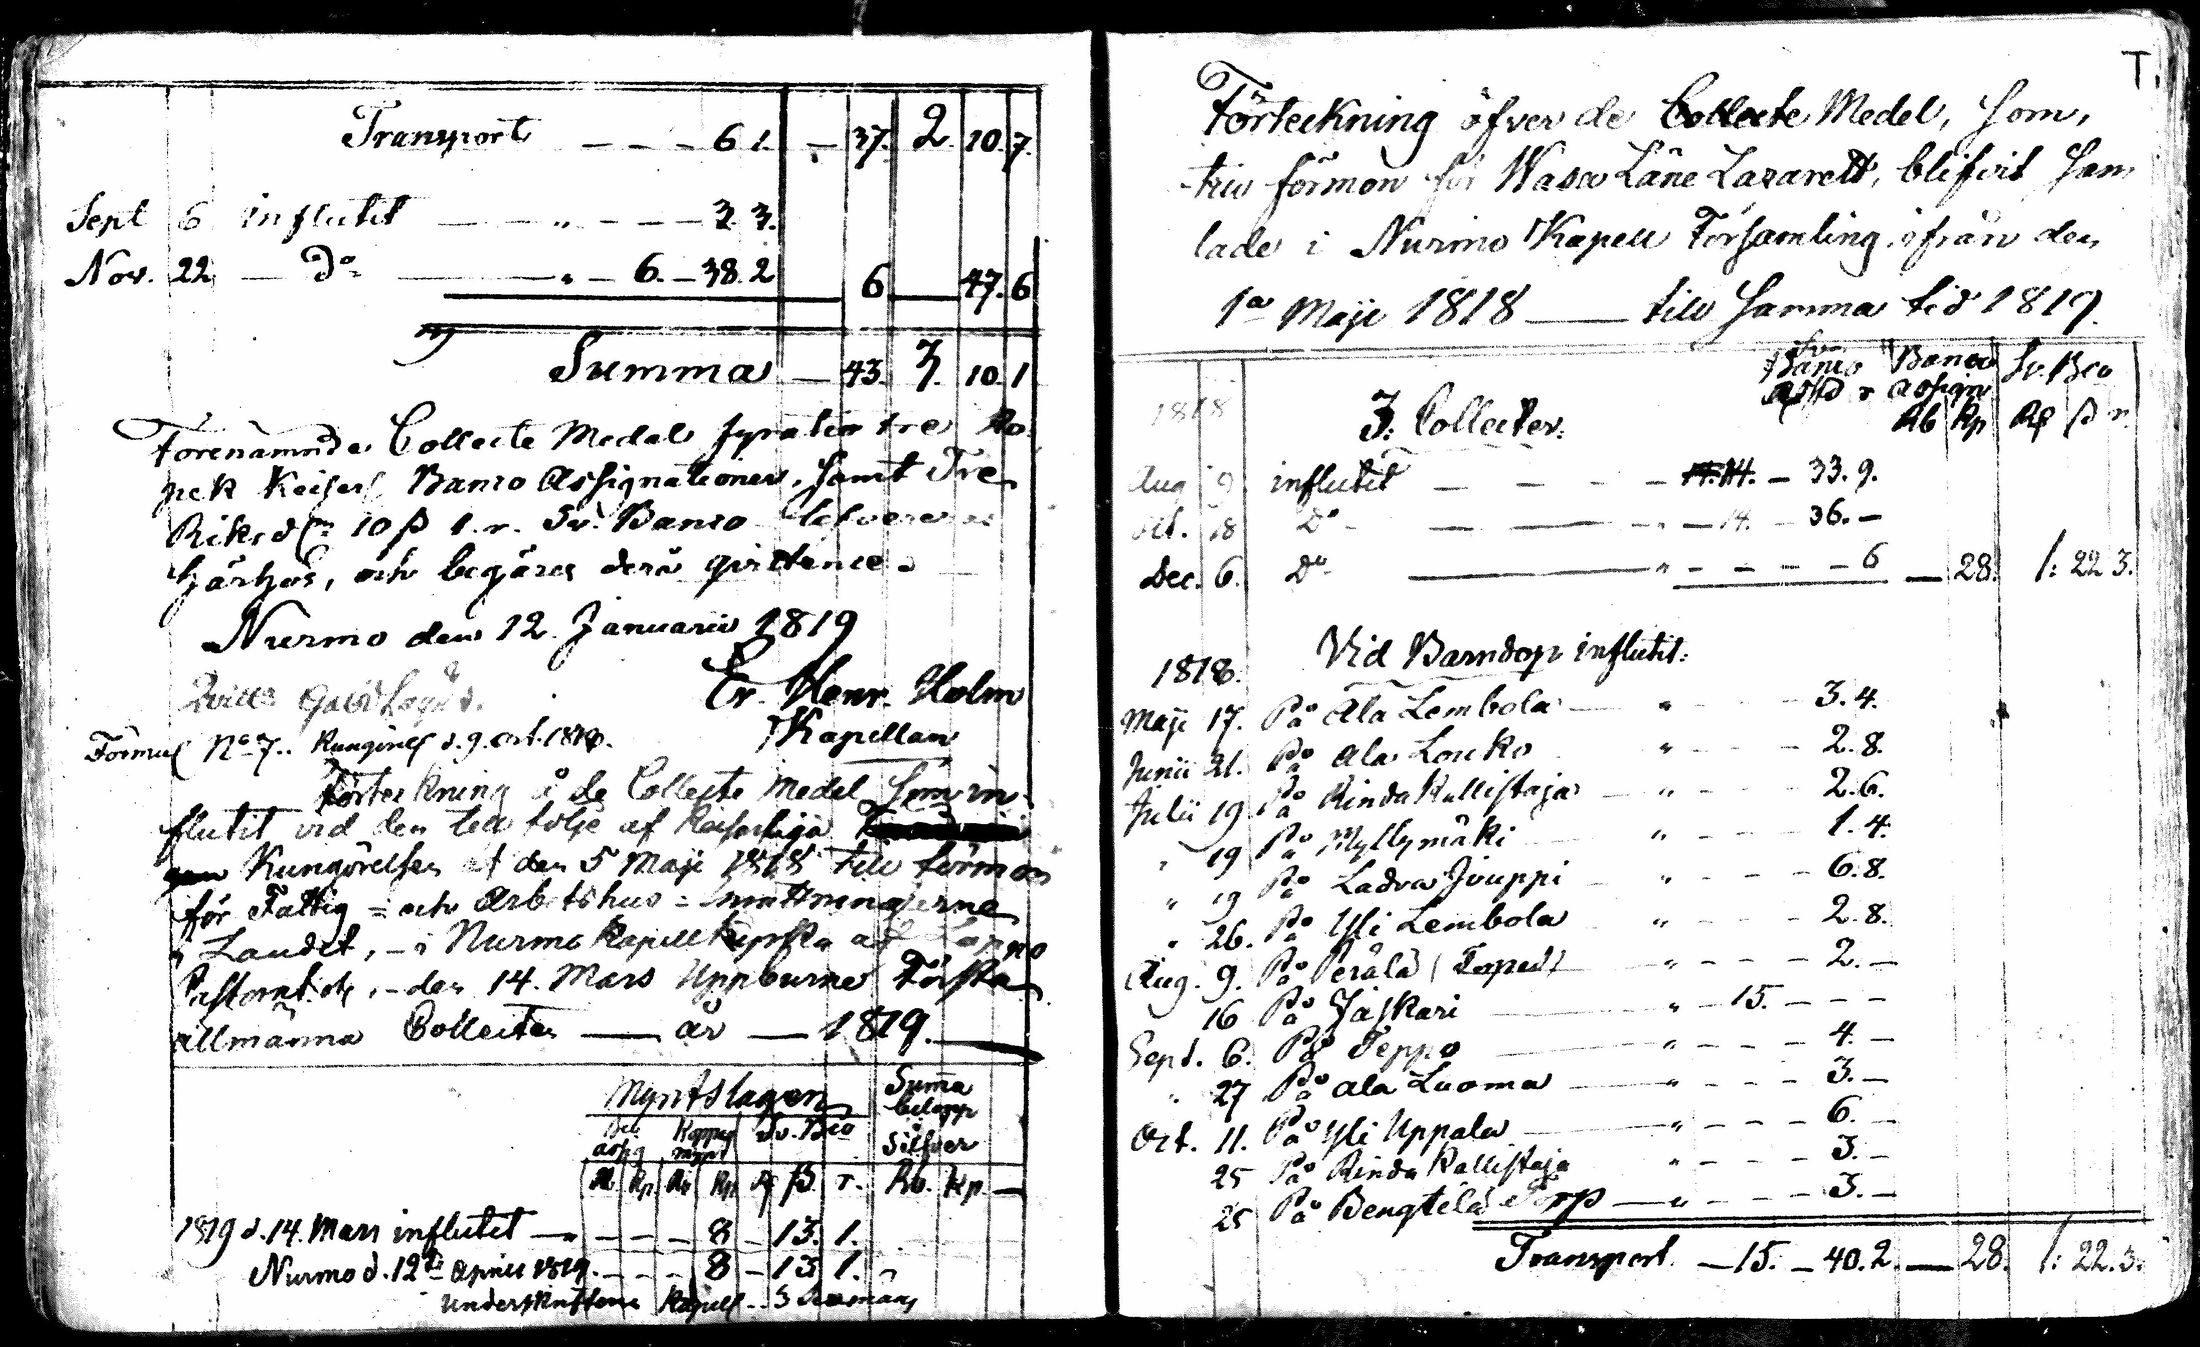 Transport — — — 61. — 37. 2. 10. 7.
Sept 6 influtit — — „ — — — 3. 3.
Nov. 22 — Do — „ — 6. — 38. 2 6 47. 6
Summa — 43. 3. 10. 1
Förenämnde Collecte Medel fyratio tre Ko
pek Keiserl. Banco Assignationer, samt Tre
Riksd 10 ß 1. r. Sv. Banco
härhos, och begäres derå qvittence.
Nurmo den 12. Januarii 1819
Er. Henr. Holm
Kapellan
Formul No 7. Kungörels d. 9. oct. 1818.
Förteckning å de Collecte Medel som in-
flutit vid den till följe af Keiserliga
Kungörelsen af den 5 Maji 1818 till förmon
för Fattig- och Arbetshus-Inrättningarne
i Landet, — i Nurmo Kapell Kyrka af Lappo
Pastorat, — den 14. Mars Uppburne Första
allmänna Collecten — år — 1819.
Myntslagen Summa
belopp
Sv. Bco Silfver
Rb. Kp. —
1819 d. 14. Mars influtit — — — — 8 — 13. 1.
Nurmo d. 12te April 1819. — — — 8 — 13. 1.
Underskrifterne Kapell. 3 Sexmän
T.
Förteckning öfver de Collecte Medel, som,
till förmon för Wasa Läne Lazarett, blifvit sam
lade i Nurmo Kapell Församling, ifrån den
1a Maji 1818 — till samma tid 1819.
Banco Banco Sv. Bco
assign
Rb Kp
1818 3. Collecter:
Aug 9. influtit — — — — 33. 9.
Oct. 18 Do — — — „ — 14. — 36. —
Dec. 6. Do — „ — — — — 6 — 28. 1: 22 3.
1818. Vid Barndop influtit:
Maji 17. På Ala Lembola — „ — — — 3. 4.
Junii 21. På Ala Louko „ — — — 2. 8.
Julii 19 På Rinda Kallistaja — „ — — — 2. 6.
„ 19 På Myllymäki „ — — — 1. 4.
„ 19 På Ladva Jouppi — „ — — — 6. 8.
„ 26. På Yli Lembola „ — — — 2. 8.
Aug. 9. På Perälä „ — — — 2. —
16 På Jäskari — „ — 15. — — —
Sept. 6. På Teppo — „ — — — 4. —
„ 27 På Ala Luoma — „ — — — 3. —
Oct. 11. På Yli Uppala — „ — — — 6. —
25 På Rinda Kallistaja „ — — — 3. —
25 På Bengtilä Torp — „ — — — 3. —
Transport. — 15. — 40. 2. — 28. 1: 22. 3.